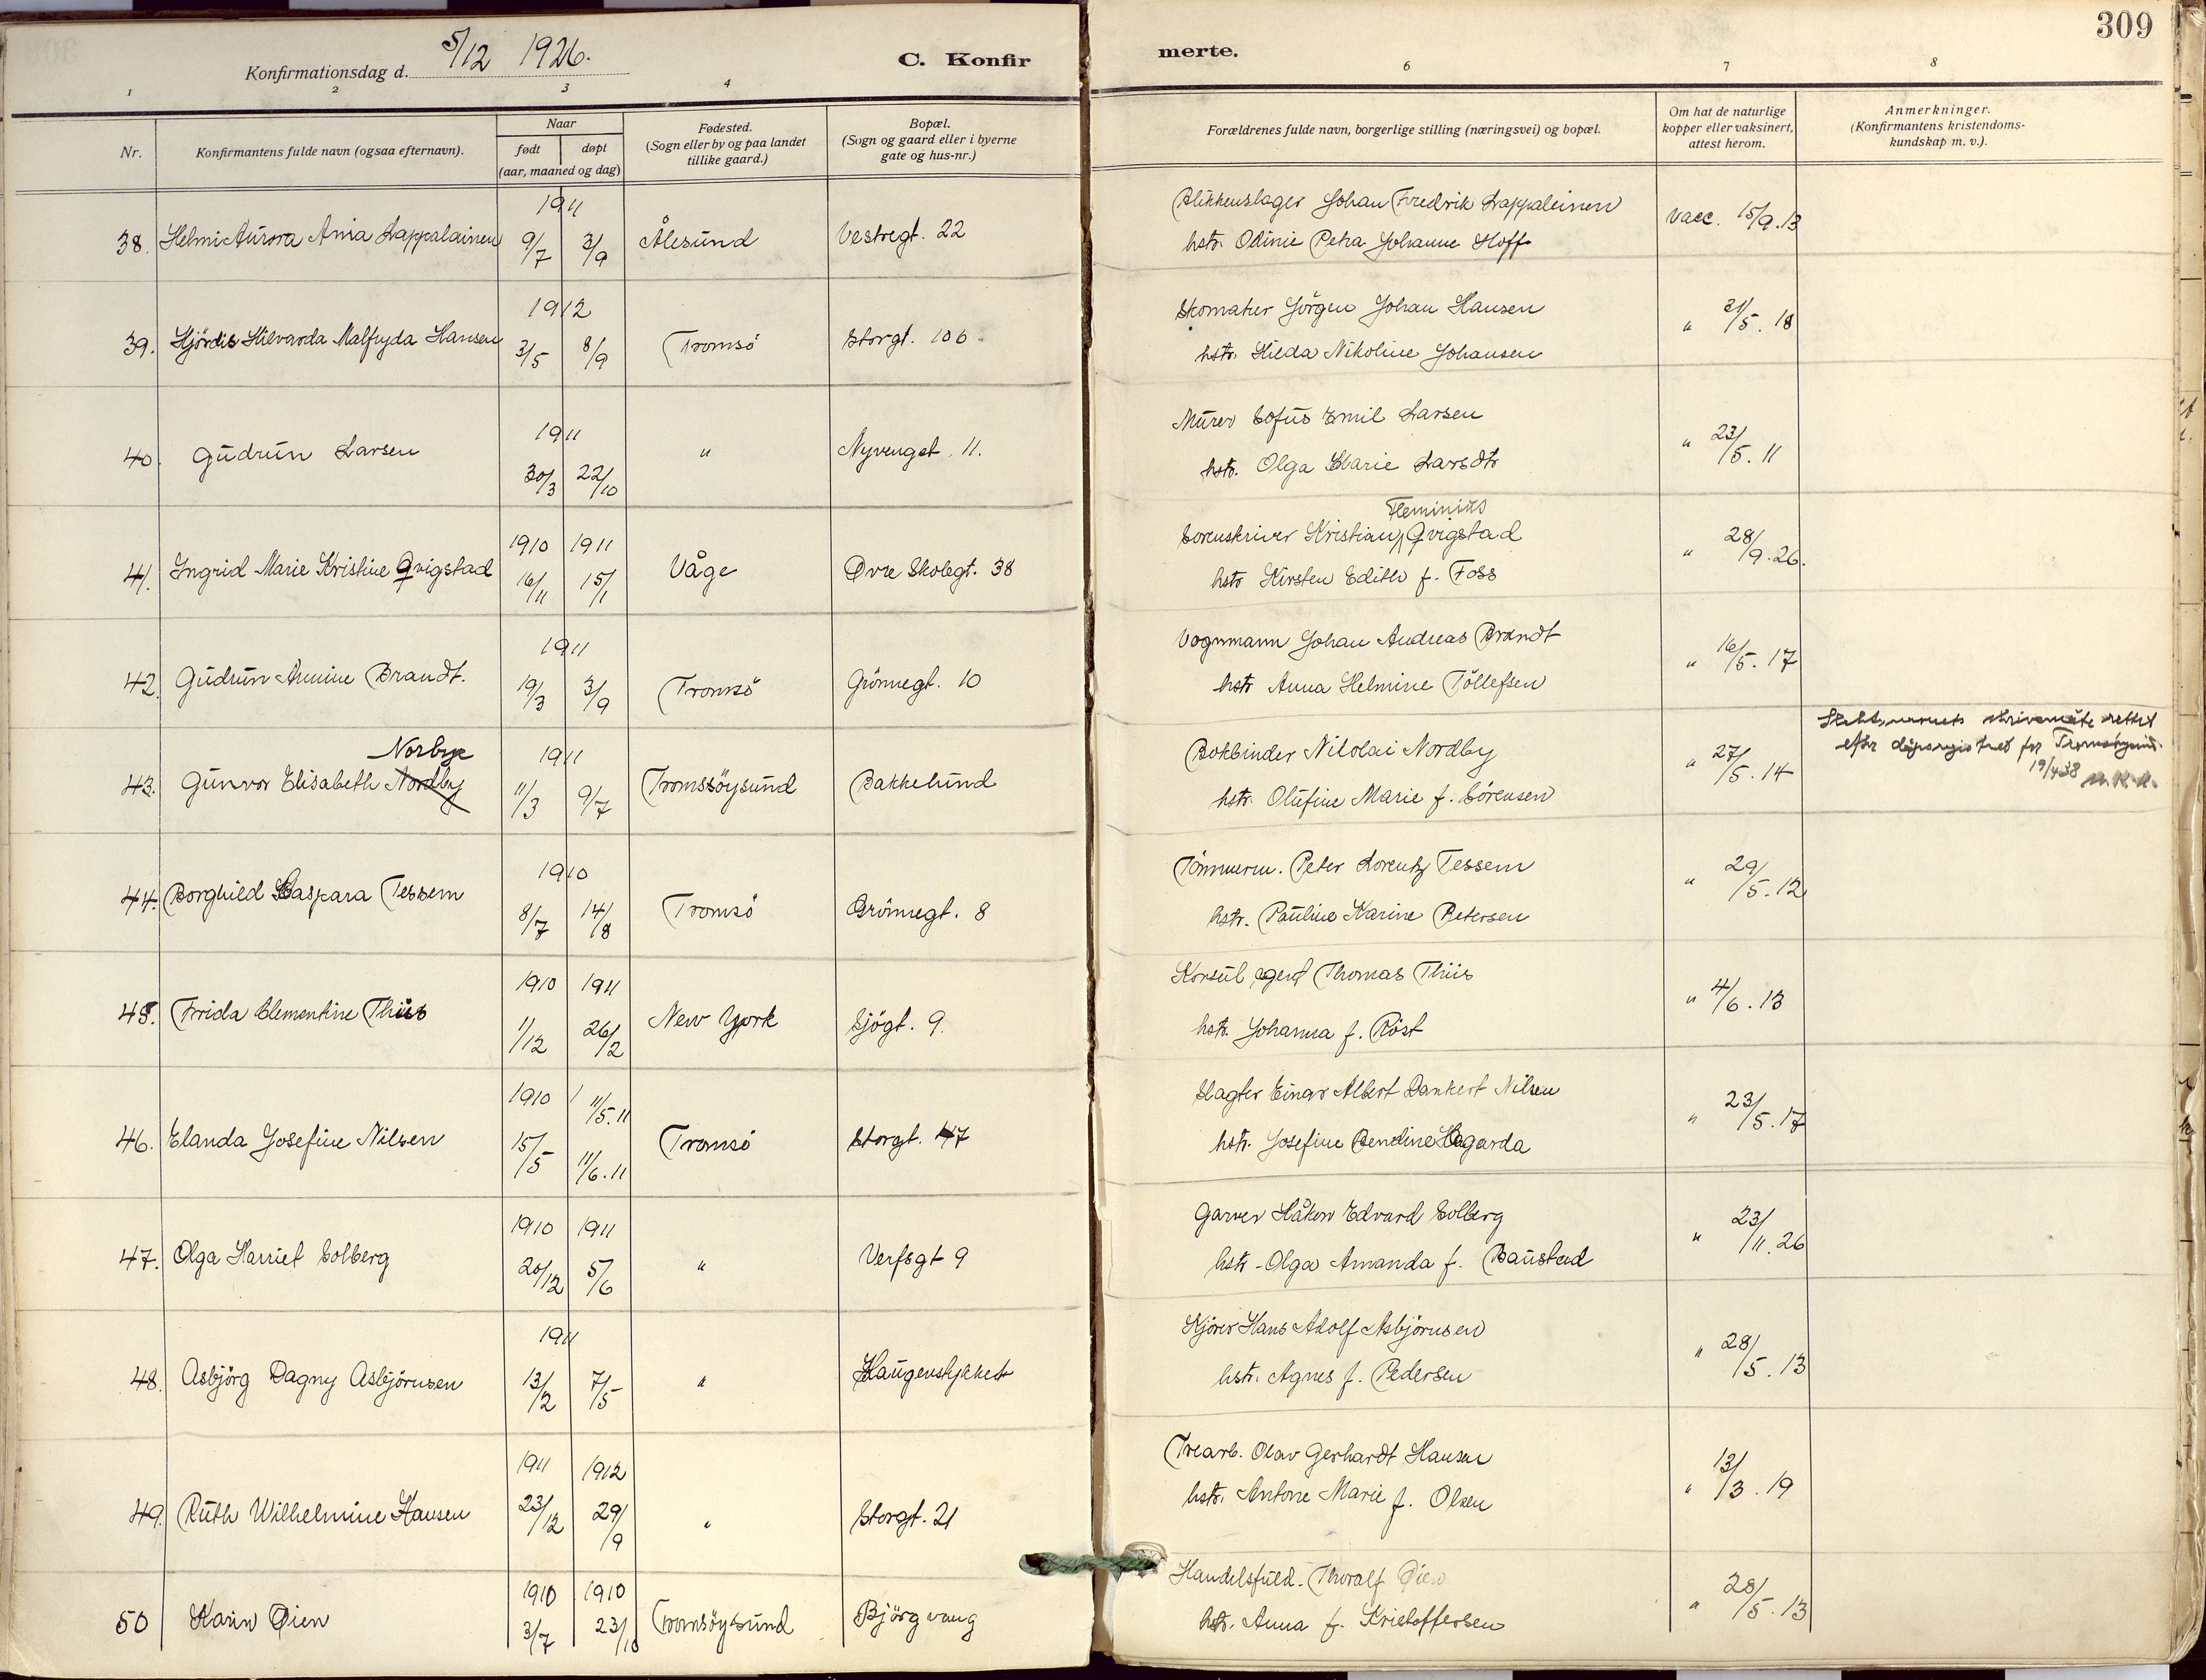 309
Konfirmationsdag d. 5/12 1926.
C. Konfir
merte.
1 2 3 4 6 7 8
Nr.
Konfirmantens fulde navn (ogsaa efternavn).
Naar
født døpt
(aar, maaned og dag)
Fødested.
(Sogn eller by og paa landet
tillike gaard.)
Bopæl.
(Sogn og gaard eller i byerne
gate og hus-nr.)
Forældrenes fulde navn, borgerlige stilling (næringsvei) og bopæl.
Om hat de naturlige
kopper eller vaksinert,
attest herom.
Anmerkninger.
(Konfirmantens kristendoms-
kundskap m. v.).
1911
38. Helmi Aurora Ania Lappalainen 9/7 3/9 Ålesund Vestregt. 22
Blikkenslager Johan Fredrik Lappaleinen
hstr. Odinie Petra Johanne Hoff
Vacc. 15/9.13
1912
39. Hjördis Hilvarda Malfryda Hansen 3/5 8/9 Tromsö Storgt. 106
Skomaker Jörgen Johan Hansen
hstr. Hilda Nikoline Johansen
" 31/5. 18
1911
40. Gudrun Larsen 30/3 22/10 " Nyvenget. 11.
Murer Sofus Emil Larsen
hstr. Olga Marie Larsdtr
" 23/5. 11
1910 1911
41. Ingrid Marie Kristine Qvigstad 16/11 15/1 Våge Øvre Skolegt. 38
Fleminius
Sorenskriver Kristian Qvigstad
hstr Kirsten Edith f. Foss
" 28/9.26.
1911
42. Gudrun Armine Brandt. 19/3 3/9 Tromsö Grönnegt. 10
Vognmann Johan Andreas Brandt
hstr Anna Helmine Töllefsen
" 16/5. 17
Norbye
1911
43. Gunvor Elisabeth Nordby 11/3 9/7 Tromsöysund Bakkelund
Bokbinder Nikolai Nordby
hstr. Olufine Marie f. Sörensen
" 27/5. 14
Slektsnavnets skrivemåte rettet
efter dåpsregistret for Tromsöysund.
19/4 38
1910
44. Borghild Kaspara Tessem 8/7 14/8 Tromsö Grönnegt. 8
Tömmerm. Peter Lorentz Tessem
hstr. Pauline Karine Petersen
" 29/5.12
1910 1911
45. Frida Clementine Thiis 1/12 26/2 New York Sjögt. 9.
Konsul agent Thomas Thiis
hstr. Johanna f. Röst
" 4/6.13
1910 11/5.11
46. Elanda Josefine Nilsen 15/5 11/6.11 Tromsö Storgt. 47
Slagter Einar Albert Dankert Nilsen
hstr. Josefine Bendine Hagarda
" 23/5.17
1910 1911
47. Olga Harriet Solberg 20/12 5/6 " Verfsgt 9
Garver Håkon Edvard Solberg
hstr. Olga Amanda f. Baustad
" 23/11.26
1911
48. Asbjörg Dagny Asbjörnsen 13/2 7/5 " Haugenstykket
Kjörer Hans Adolf Asbjörnsen
hstr. Agnes f. Pedersen
" 28/5.13
1911 1912
49. Ruth Wilhelmine Hansen 23/12 29/9 " Storgt. 21
Trearb. Olav Gerhardt Hansen
hstr. Antone Marie f. Olsen
" 13/3. 19
1910 1910
50 Karin Øien 3/7 23/10 Tromsöysund Björgvang
Handelsfuld. Thoralf Øien
hstr. Anna f. Kristoffersen
" 28/5.13